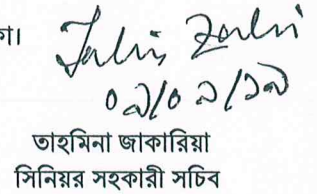 কা।
০৯/০৯/১৯
তাহমিনা জাকারিয়া
সিনিয়র সহকারী সচিব